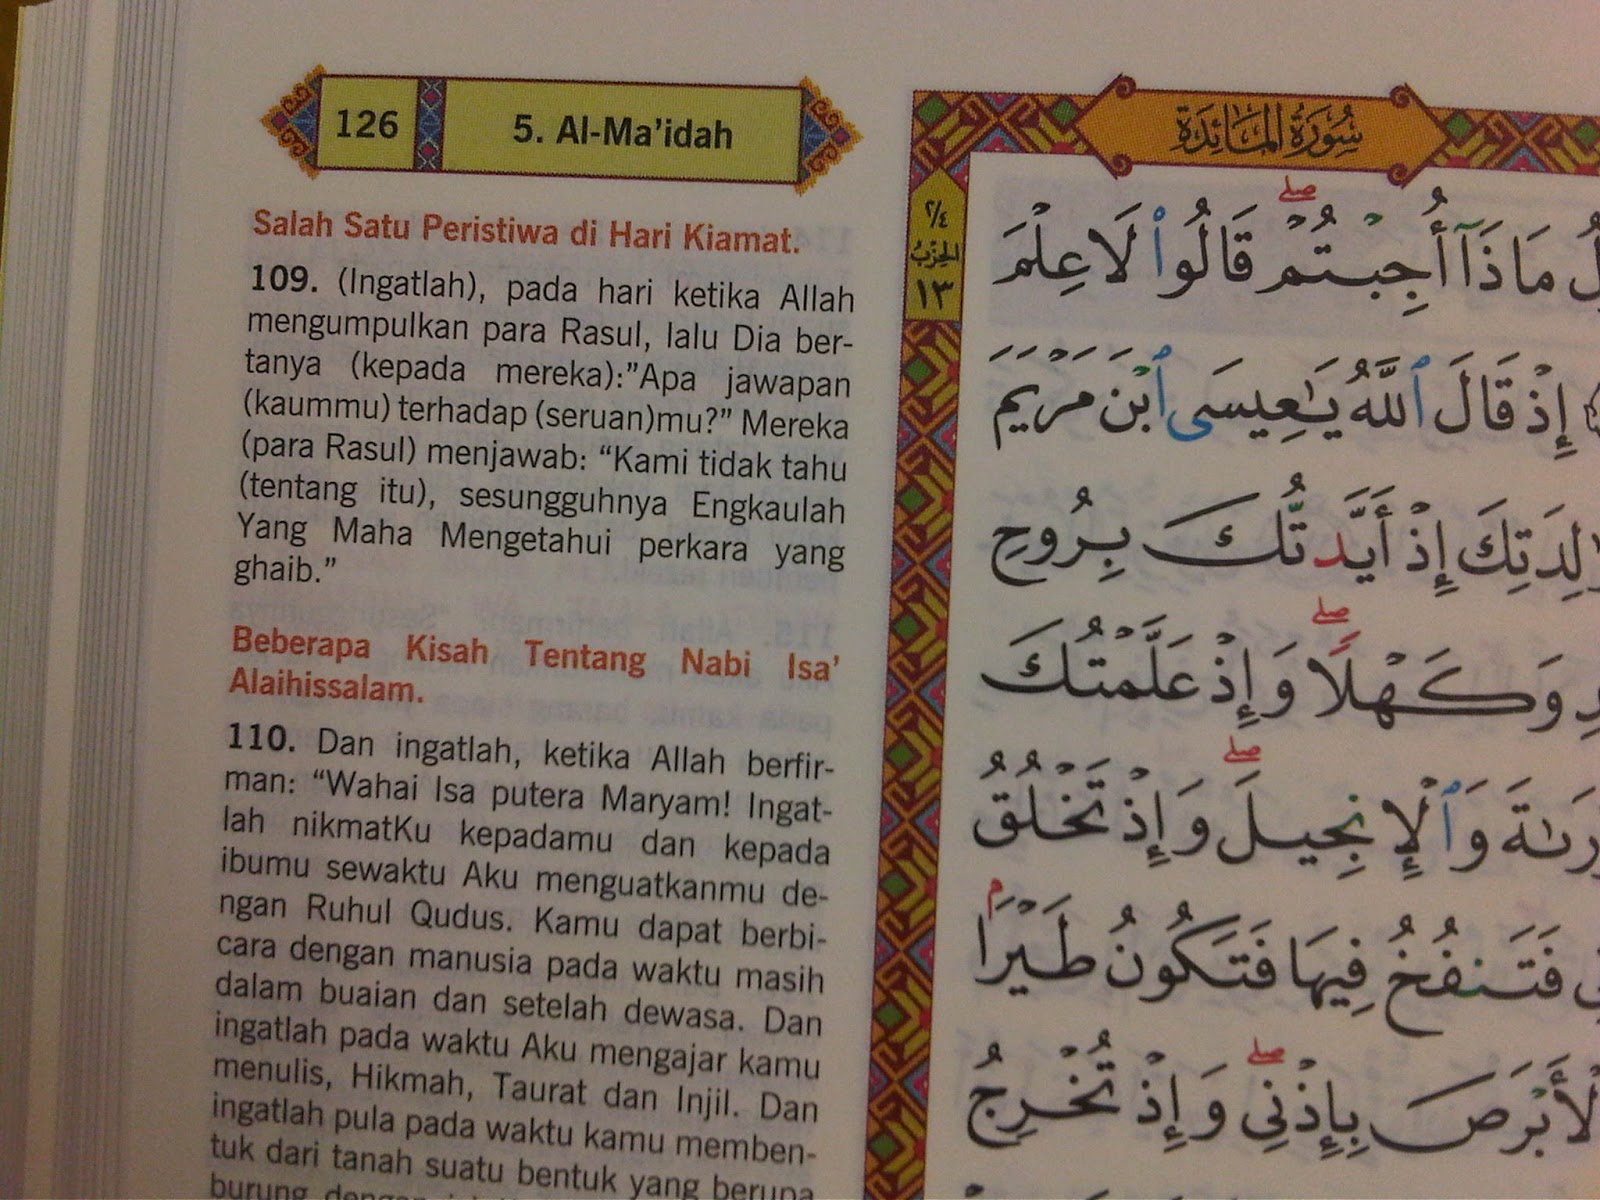 126
5. Al-Ma’idah
Salah Satu Peristiwa di Hari Kiamat.
109. (Ingatlah), pada hari ketika Allah
mengumpulkan para Rasul, lalu Dia ber-
tanya (kepada mereka):”Apa jawapan
(kaummu) terhadap (seruan)mu?” Mereka
(para Rasul) menjawab: “Kami tidak tahu
(tentang itu), sesungguhnya Engkaulah
Yang Maha Mengetahui perkara yang
ghaib.”
Beberapa Kisah Tentang Nabi Isa’
Alaihissalam.
110. Dan ingatlah, ketika Allah berfir-
man: “Wahai Isa putera Maryam! Ingat-
lah nikmatKu kepadamu dan kepada
ibumu sewaktu Aku menguatkanmu de-
ngan Ruhul Qudus. Kamu dapat berbi-
cara dengan manusia pada waktu masih
dalam buaian dan setelah dewasa. Dan
ingatlah pada waktu Aku mengajar kamu
menulis, Hikmah, Taurat dan Injil. Dan
ingatlah pula pada waktu kamu memben-
tuk dari tanah suatu bentuk yang berupa
burung
سُورَةُ المَائِدَة
٢/٤
الحِزْبُ
١٣
مَاذَآ أُجِبْتُمْ ۖ قَالُوا۟ لَا عِلْمَ
إِذْ قَالَ ٱللَّهُ يَـٰعِيسَى ٱبْنَ مَرْيَمَ
إِذْ أَيَّدتُّكَ بِرُوحِ
وَكَهْلًا ۖ وَإِذْ عَلَّمْتُكَ
وَٱلْإِنجِيلَ ۖ وَإِذْ تَخْلُقُ
فَتَنفُخُ فِيهَا فَتَكُونُ طَيْرًۢا
بِإِذْنِى ۖ وَإِذْ تُخْرِجُ